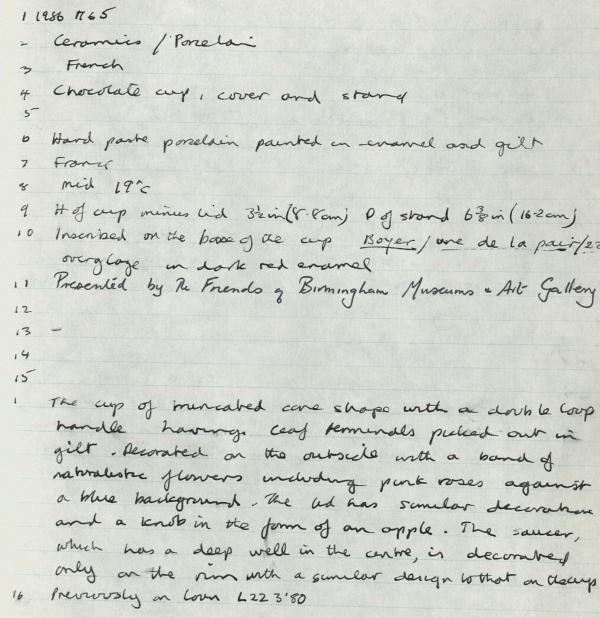 1 1986 M65
2 Ceramics / Porcelain
3 French
4 Chocolate cup, cover and stand
5
6 Hard paste porcelain painted in enamel and gilt
7 France
8 mid 19°c
9 H of cup minus lid 3½in (8.8cm) D of stand 6⅜in (16.2cm)
10 Inscribed on the base of the cup Boyer / rue de la paix/22
overglaze in dark red enamel
11 Presented by The Friends of Birmingham Museums & Art Gallery
12
13 —
14
15
1 The cup of truncated cone shape with a double loop
handle having leaf terminals picked out in
gilt. Decorated on the outside with a band of
naturalistic flowers including pink roses against
a blue background. The lid has similar decoration
and a knob in the form of an apple. The saucer,
which has a deep well in the centre, is decorated
only on the rim with a similar design to that on the cup
16 Previously on loan L223'80